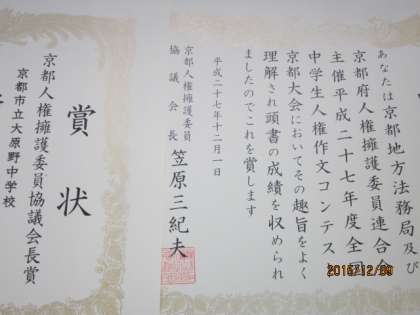 あなたは京都地方法務局及び
京都府人権擁護委員連合会
主催平成二十七年度全国
中学生人権作文コンテスト
京都大会においてその趣旨をよく
理解され頭書の成績を収められ
ましたのでこれを賞します
平成二十七年十二月一日
京都人権擁護委員
協議会長 笠原三紀夫
賞状
京都人権擁護委員協議会長賞
京都市立大原野中学校
2015/12/09